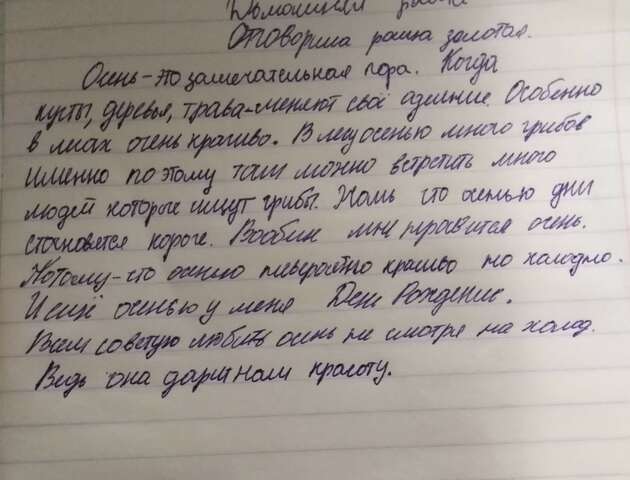 Домашняя работа
Отговорила роща золотая.
Осень-это замечательная пора. Когда
кусты, деревья, трава-меняют своё одеяние. Особенно
в лесах очень красиво. В лесу осенью много грибов
именно по этому там можно встретить много
людей которые ищут грибы. Жаль что осенью дни
становятся короче. Вообще мне нравится осень.
Потому-что осенью невероятно красиво но холодно.
И ещё осенью у меня День Рождение.
Всем советую любить осень не смотря на холод.
Ведь она дарит нам красоту.